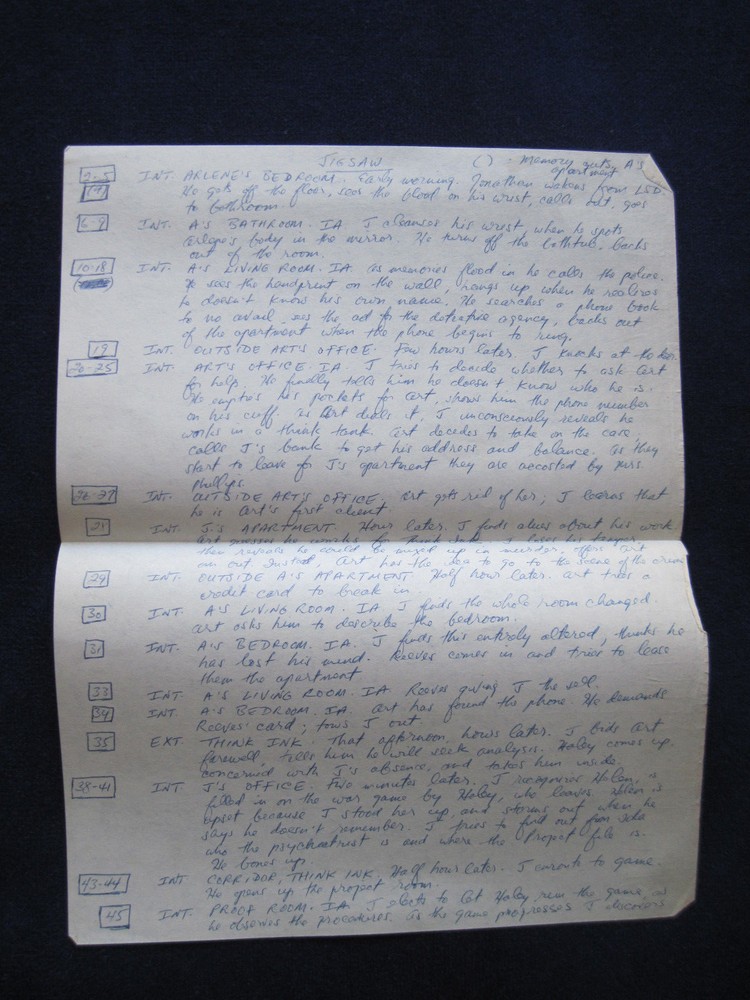 JIGSAW ( ) = Memory outs. A's
apartment
2-5 INT. ARLENE'S BEDROOM. Early morning. Jonathan wakens from LSD.
(19) He gets off the floor, sees the blood on his wrist, calls out, goes
to bathroom.
6-9 INT. A'S BATHROOM. IA J cleanses his wrist when he spots
Arlene's body in the mirror. He turns off the bathtub, backs
out of the room.
10-18 INT. A'S LIVING ROOM. IA. As memories flood in he calls the police.
He sees the handprint on the wall, hangs up when he realizes
he doesn't know his own name. He searches a phone book
to no avail, sees the ad for the detective agency, backs out
of the apartment when the phone begins to ring.
19 INT. OUTSIDE ART'S OFFICE. Few hours later. J knocks at the door.
20-25 INT. ART'S OFFICE. IA J tries to decide whether to ask Art
for help. He finally tells him he doesn't know who he is.
He empties his pockets for Art, shows him the phone number
on his cuff. As Art dials it, J unconsciously reveals he
works in a think tank. Art decides to take on the case,
calls J's bank to get his address and balance. As they
start to leave for J's apartment they are accosted by Mrs.
Phillips.
26-27 INT. OUTSIDE ART'S OFFICE. Art gets rid of her; J learns that
he is Art's first client.
INT. J'S APARTMENT. Hour later. J finds clues about his work.
Art guesses he works for Think Ink. J loses his temper,
then reveals he could be mixed up in murder, offers Art
an out. Instead, Art has the idea to go to the scene of the crime.
29 INT. OUTSIDE A'S APARTMENT. Half hour later. Art tries a
credit card to break in.
30 INT. A'S LIVING ROOM. IA J finds the whole room changed.
Art asks him to describe the bedroom.
31 INT. A'S BEDROOM. IA. J finds this entirely altered, thinks he
has lost his mind. Reeves comes in and tries to lease
them the apartment
33 INT. A'S LIVING ROOM. IA Reeves giving J the sell.
34 INT. A'S BEDROOM. IA. Art has found the phone. He demands
Reeves' card; tows J out.
35 EXT. THINK INK. That afternoon, hours later. J bids Art
farewell, tells him he will seek analysis. Haley comes up,
concerned with J's absence, and takes him inside.
38-41 INT J'S OFFICE. Two minutes later. J recognizes Helen, is
filled in on the war game by Haley, who leaves. Helen is
upset because J stood her up, and storms out when he
says he doesn't remember. J tries to find out from
who the psychiatrist is and where the Project file is.
He bones up.
43-44 INT CORRIDOR, THINK INK. Half hour later. J enroute to game.
He opens up the project room.
45 INT. PROJ ROOM. IA. J elects to let Haley run the game as
he observes the procedures. As the game progresses J discovers